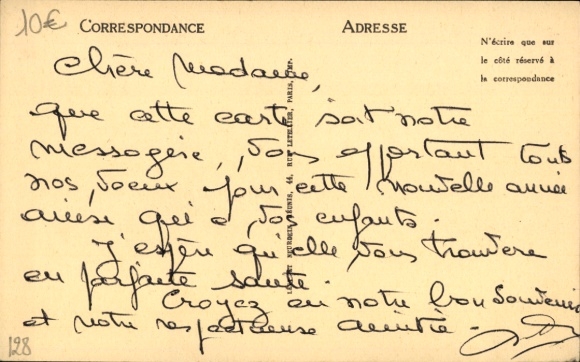 10€
CORRESPONDANCE
ADRESSE
N'écrire que sur
le côté réservé à
la correspondance
Chère Madame,
que cette carte soit notre
messagère, vous apportant tous
nos voeux pour cette nouvelle année
ainsi qu'à vos enfants.
J'espère qu'elle vous trouvera
en parfaite santé.
Croyez en notre bon souvenir
et notre respectueuse amitié.
44, RUE LETELLIER, PARIS, IMP.
128